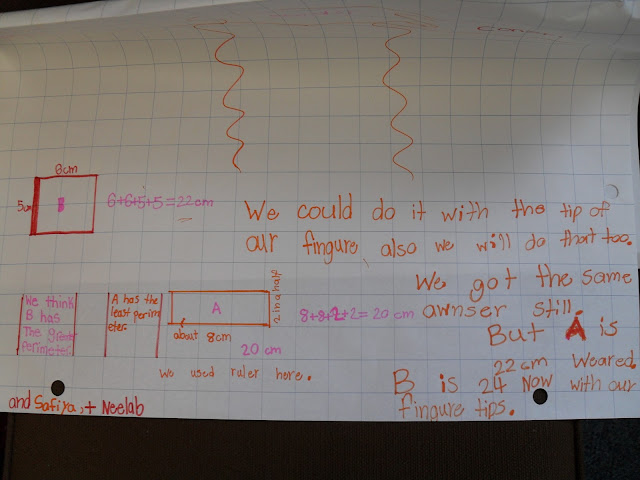 6cm
5cm
B
6+6+5+5=22cm
We could do it with the tip of
our fingure, also we will do that too.
We got the same
awnser still.
But A is
22cm Weared.
B is 24 Now with our
fingure tips.
We think
B has
The great
perimeter.
A has the
least perim
eter.
A
2 in a half
about 8cm
8+8+2+2=20 cm
20 cm
We used ruler here.
and Safiya, + Neelab